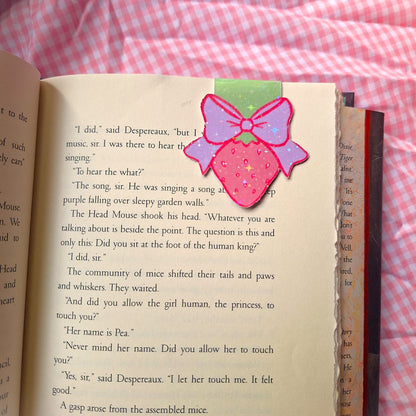 t to the
of such
ely ears"
Mouse
ow. We
d to
Head
heart
"I did," said Despereaux, "but I
music, sir. I was there to hear the
singing."
"To hear the what?"
"The song, sir. He was singing a song
purple falling over sleepy garden walls."
The Head Mouse shook his head. "Whatever you are
talking about is beside the point. The question is this and
only this: Did you sit at the foot of the human king?"
"I did, sir."
The community of mice shifted their tails and paws
and whiskers. They waited.
"And did you allow the girl human, the princess, to
touch you?"
"Her name is Pea."
"Never mind her name. Did you allow her to touch
you?"
"Yes, sir," said Despereaux. "I let her touch me. It felt
good."
A gasp arose from the assembled mice.